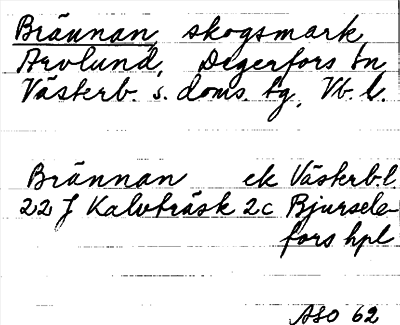 Brännan, skogsmark
Arvlund, Degerfors sn
Västerb. s. doms. tg, Vb. l.
Brännan ek Västerb.l.
22 J Kalvträsk 2c Bjursele-
fors hpl
ASO 62